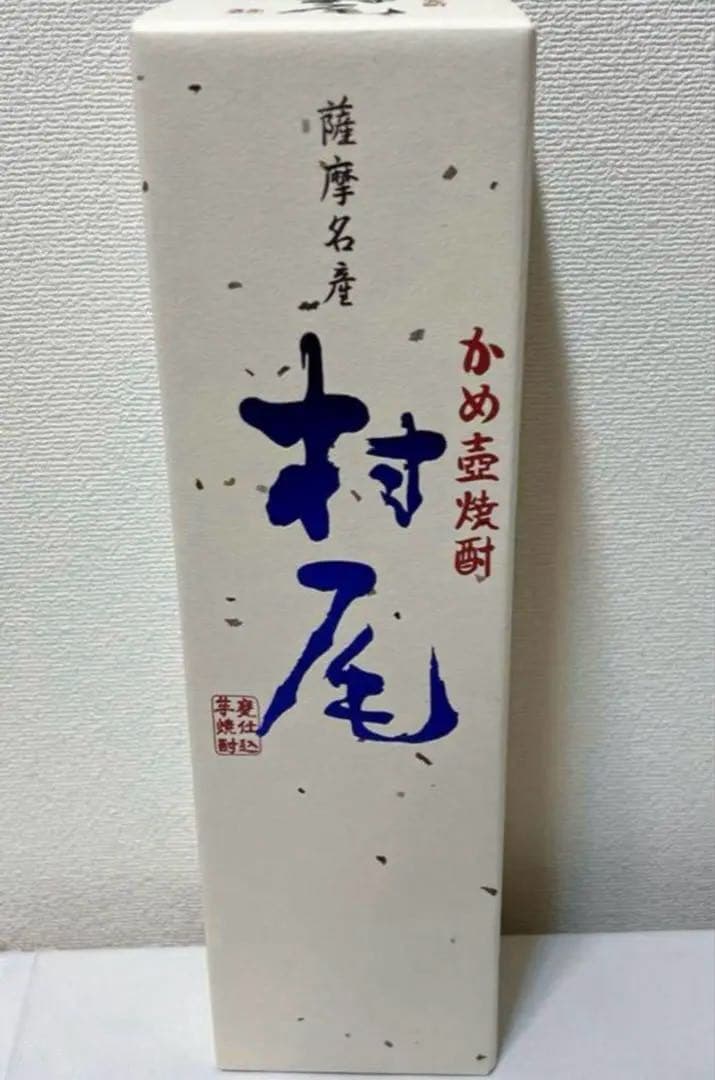 かめ壺焼酎
薩摩名産
村尾
甕仕込
芋焼酎